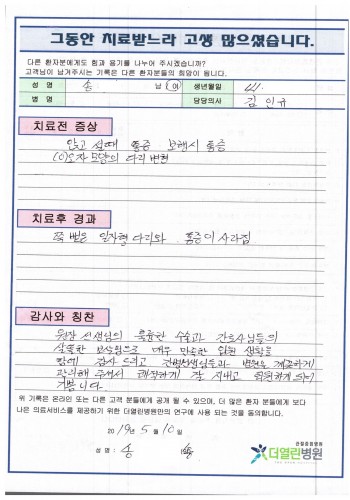 그동안 치료받느라 고생 많으셨습니다.
다른 환자분에게도 힘과 용기를 나누어 주시겠습니까?
고객님이 남겨주시는 기록은 다른 환자분들의 희망이 됩니다.
성 명 송 남 여 생년월일
병 명 담당의사 김인규
치료전 증상
앉고 설때 통증 보행시 통증
(O)오자 모양의 다리 변형
치료후 경과
쭉 뻗은 일자형 다리와 통증이 사라짐
감사와 칭찬
원장 선생님의 훌륭한 수술과 간호사님들의
살뜰한 보살핌으로 매우 만족한 입원 생활을
하여 감사 드리고 간병선생님들과 병원을
관리해 주셔서 쾌적하게 잘 지내고 퇴원하게 되어
기쁩니다.
위 기록은 온라인 또는 다른 고객 분들에게 공개 될 수 있으며, 더 많은 환자 분들에게 보다
나은 의료서비스를 제공하기 위한 더열린병원만의 연구에 사용 되는 것을 동의합니다.
2019년 5월 10일
성 명 : 송
관절중점병원
더열린병원